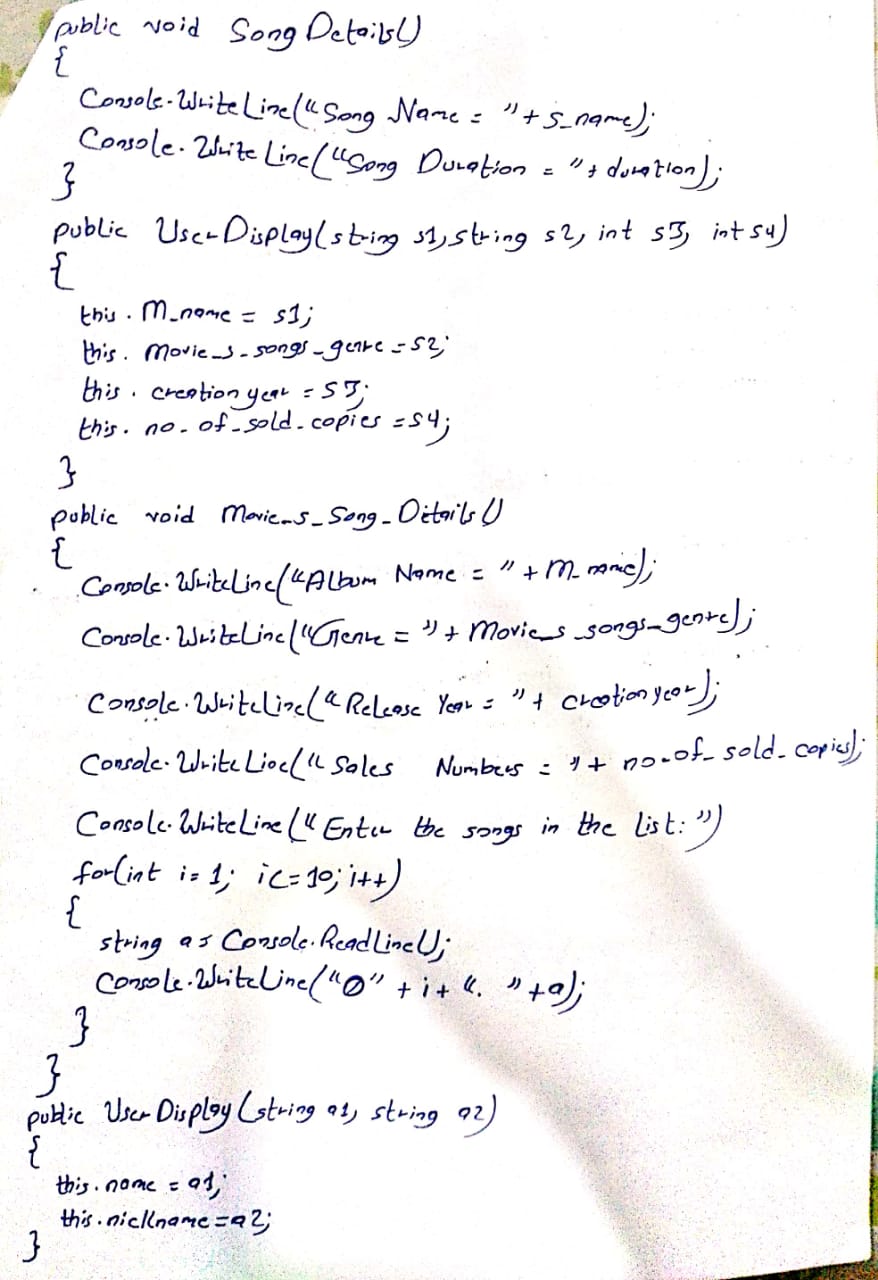 public void SongDetails()
{
Console.WriteLine("Song Name = "+s_name);
Console.WriteLine("Song Duration = "+duration);
}
public UserDisplay(string s1,string s2, int s3, int s4)
{
this.m_name = s1;
this.movie_s_songs_genre=s2;
this.creationyear=s3;
this.no_of_sold_copies=s4;
}
public void Movie_s_Song_Details()
{
Console.WriteLine("Album Name = "+m_name);
Console.WriteLine("Genre = "+movie_s_songs_genre);
Console.WriteLine("Release Year = "+creationyear);
Console.WriteLine("Sales Numbers = "+no_of_sold_copies);
Console.WriteLine("Enter the songs in the list:")
for(int i=1; i<=10; i++)
{
string a= Console.ReadLine();
Console.WriteLine("0" +i+". "+a);
}
}
public UserDisplay(string a1, string a2)
{
this.name = a1;
this.nickname=a2;
}